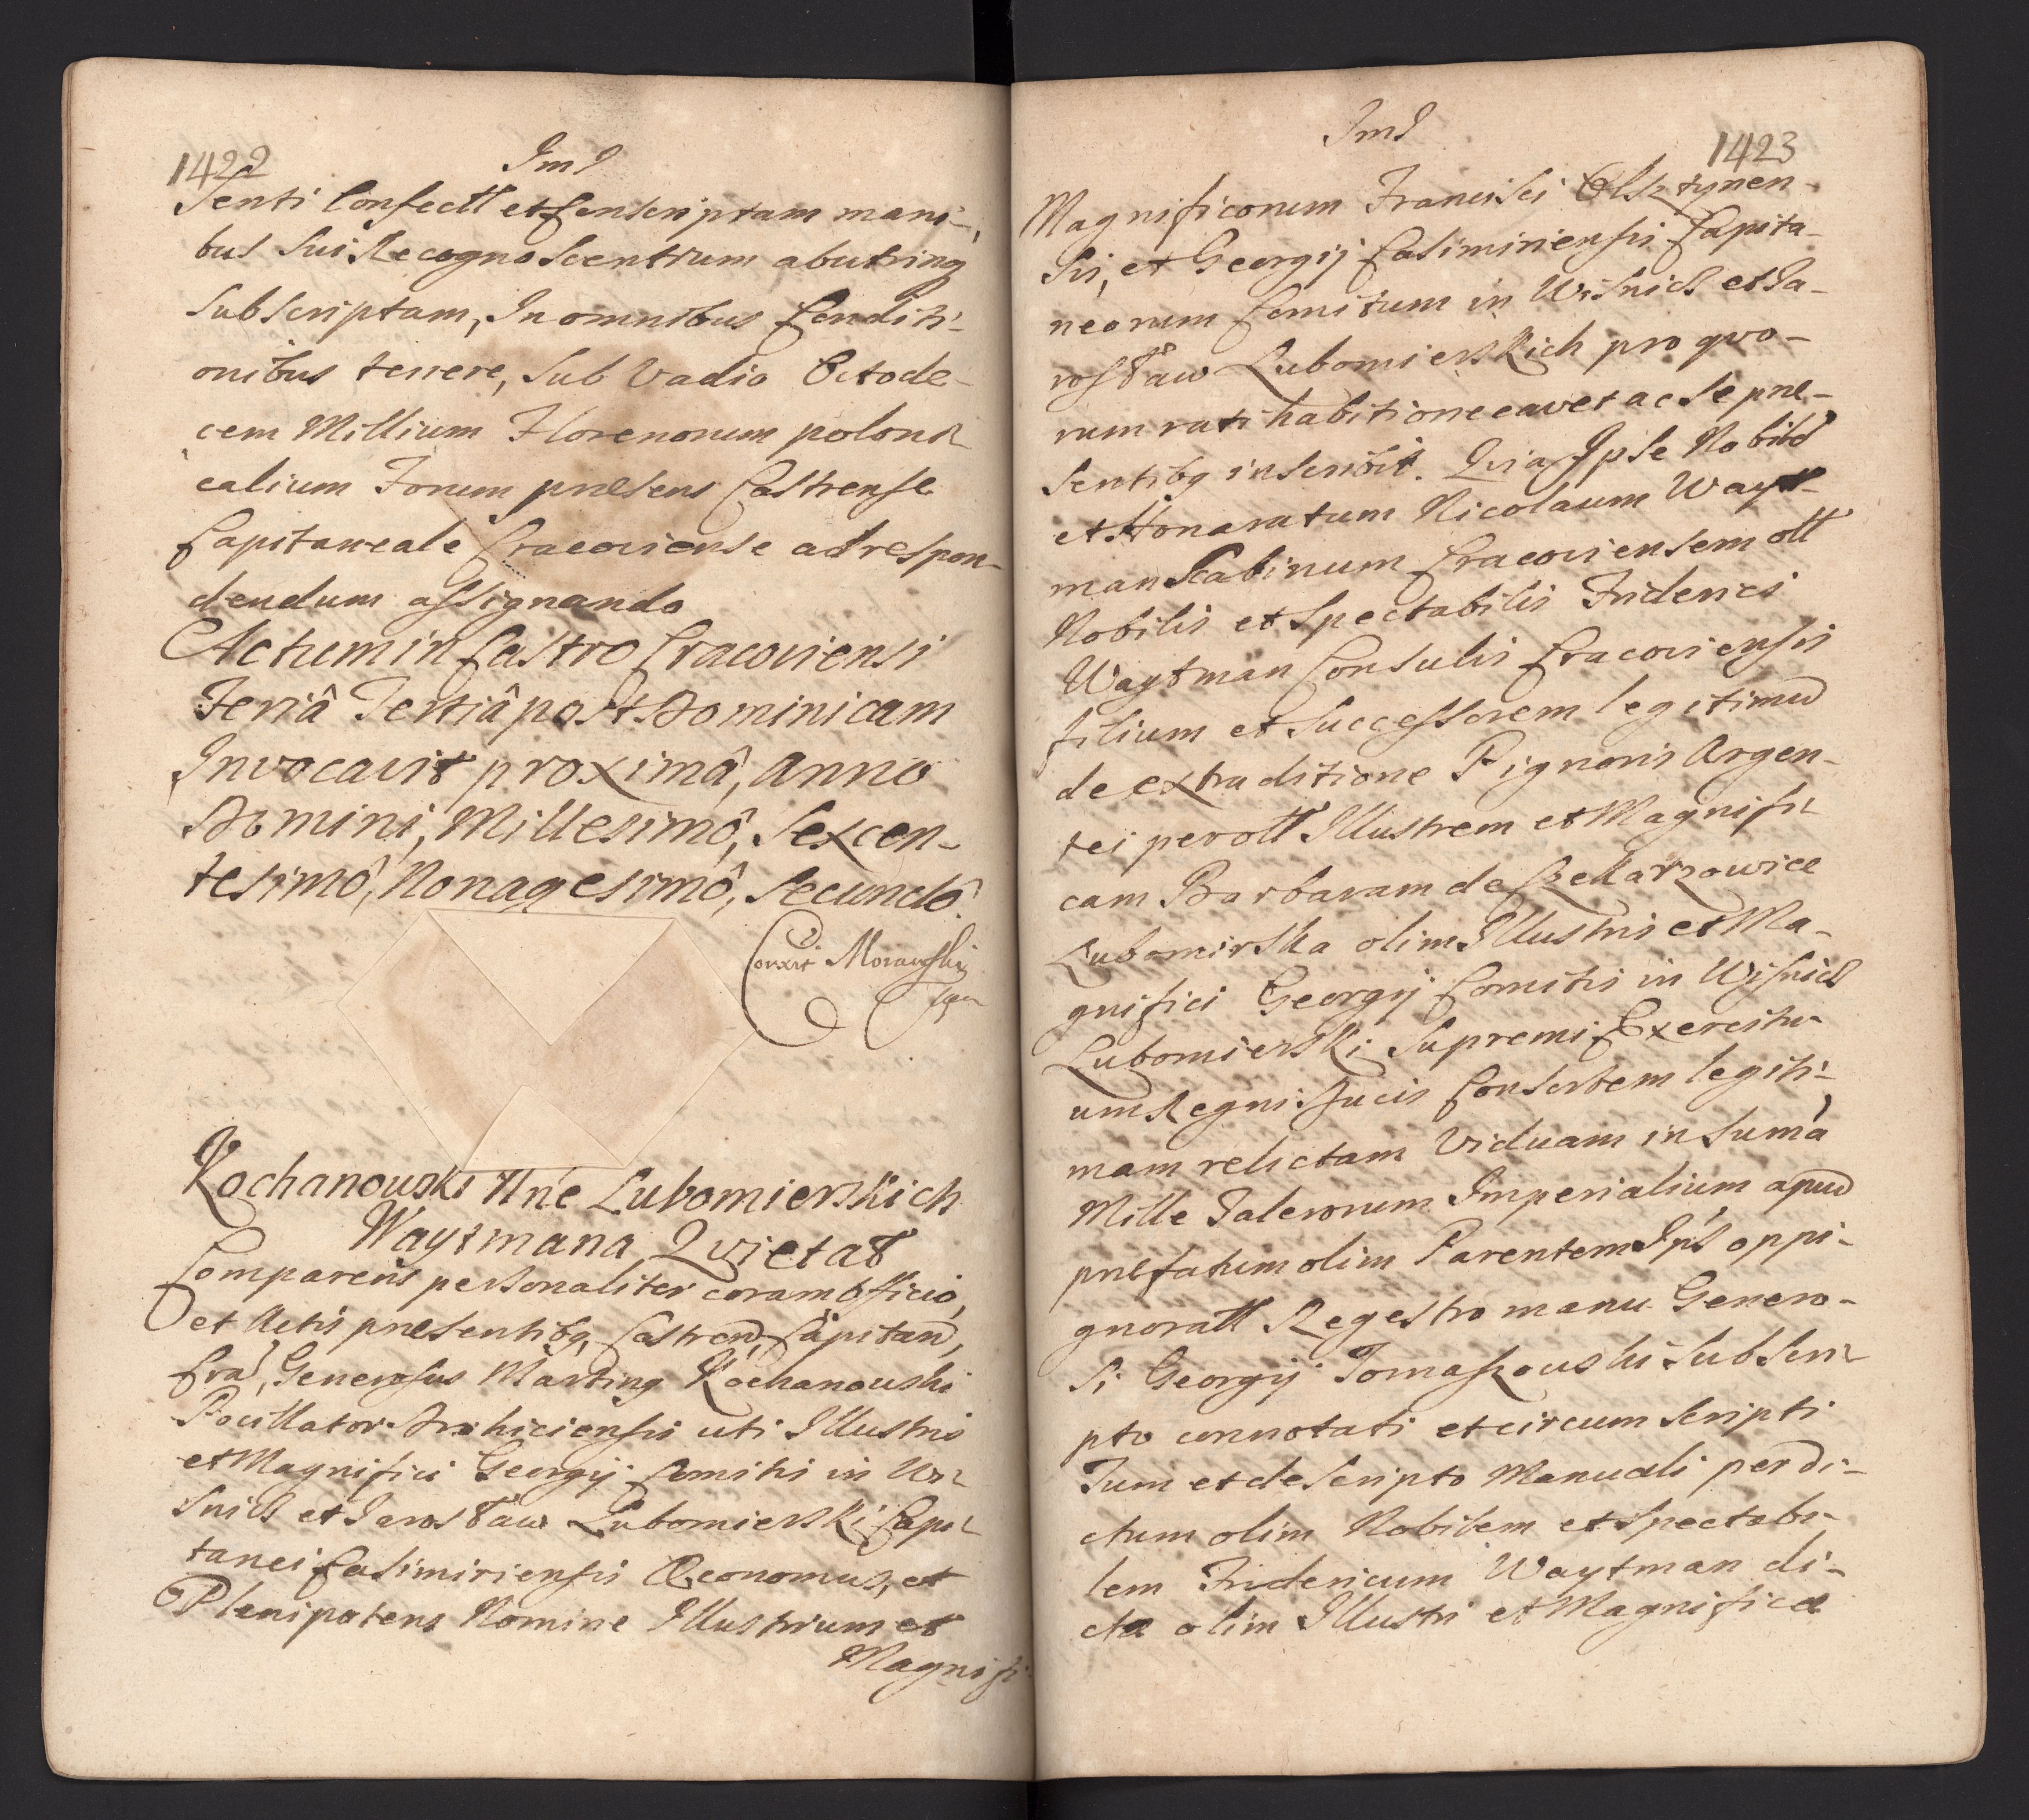 1422
JmJ
senti Confectt et Conscriptam mani-
bus Sui Recognoscentium abutrinq
Subscriptam, In omnibus Conditi-
onibus tenere, Sub Vadio Octode-
cem Millium Florenorum poloni-
calium Forum præsens Castrense
Capitaneale Cracoviense ad respon-
dendum assignando
Actum in Castro Cracoviensi
Feriâ Tertiâ post Dominicam
Invocavit proximâ, Anno
Domini, Millesimô, Sexcen-
tesimô, Nonagesimô, Secundô.
Corrxit Morawski
Kochanowski Nne Lubomierskich
Waytmana Qvietat
Comparens personaliter coram Officio,
et Actis præsentibq Castren Capitan,
Cra, Generosus Marting Kochanowski
Pocillator Drohiciensis uti Illustris
et Magnifici Georgij Comitis in Wi-
snicz et Jarosław Lubomierski Capi-
tanei Casimiriensis Œconomus, et
Plenipotens Nomine Illustrium et
Magnifi-
JmJ
1423
Magnificorum Francisci Olsztynen-
sis, et Georgij Casimiriensis Capita-
neorum Comitum in Wisnicz et Ja-
rosław Lubomierskich pro qvo-
rum ratihabitione cavet ac se præ-
sentibq inscribit. Qvia Ipse Nobilē
et Honoratum Nicolaum Wayt-
man Scabinum Cracoviensem ott
Nobilis et Spectabilis Friderici
Waytman Consulis Cracoviensis
filium et Successorem legitimū
de extraditione Pignoris Argen-
tei per ott Illustrem et Magnifi-
cam Barbaram de
Lubomirska olim Illustris et Ma-
gnifici Georgij Comitis in Wisnicz
Lubomierski Supremi Exercitu-
um Regni Ducis Consortem legiti-
mam relictam Viduam in Suma
Mille Talerorum Imperialium apud
præfatum olim Parentem Ips oppi-
gnoratt Regestro manu Genero-
si Georgij Tomaszowski Subscri-
pto connotati et circumscripti
Tum et de Scripto Manuali per di-
ctum olim Nobilem et Spectabi-
lem Fridericum Waytman di-
ctæ olim Illustri et Magnificæ